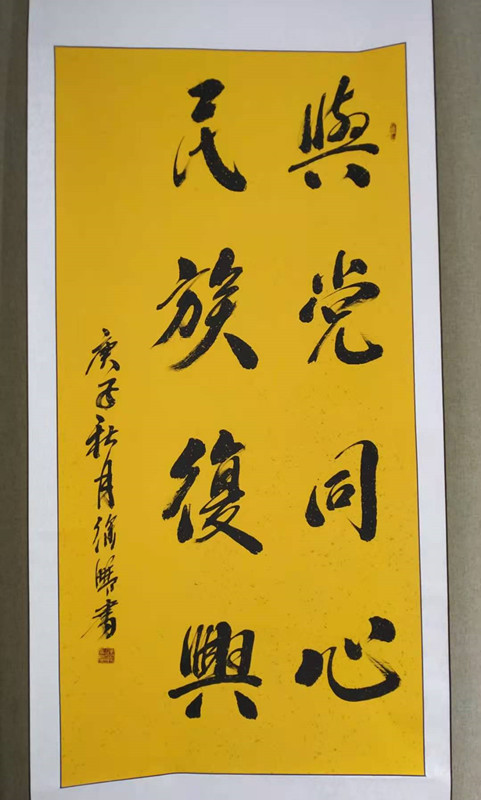 與党同心
民族復興
庚子秋月徐興書